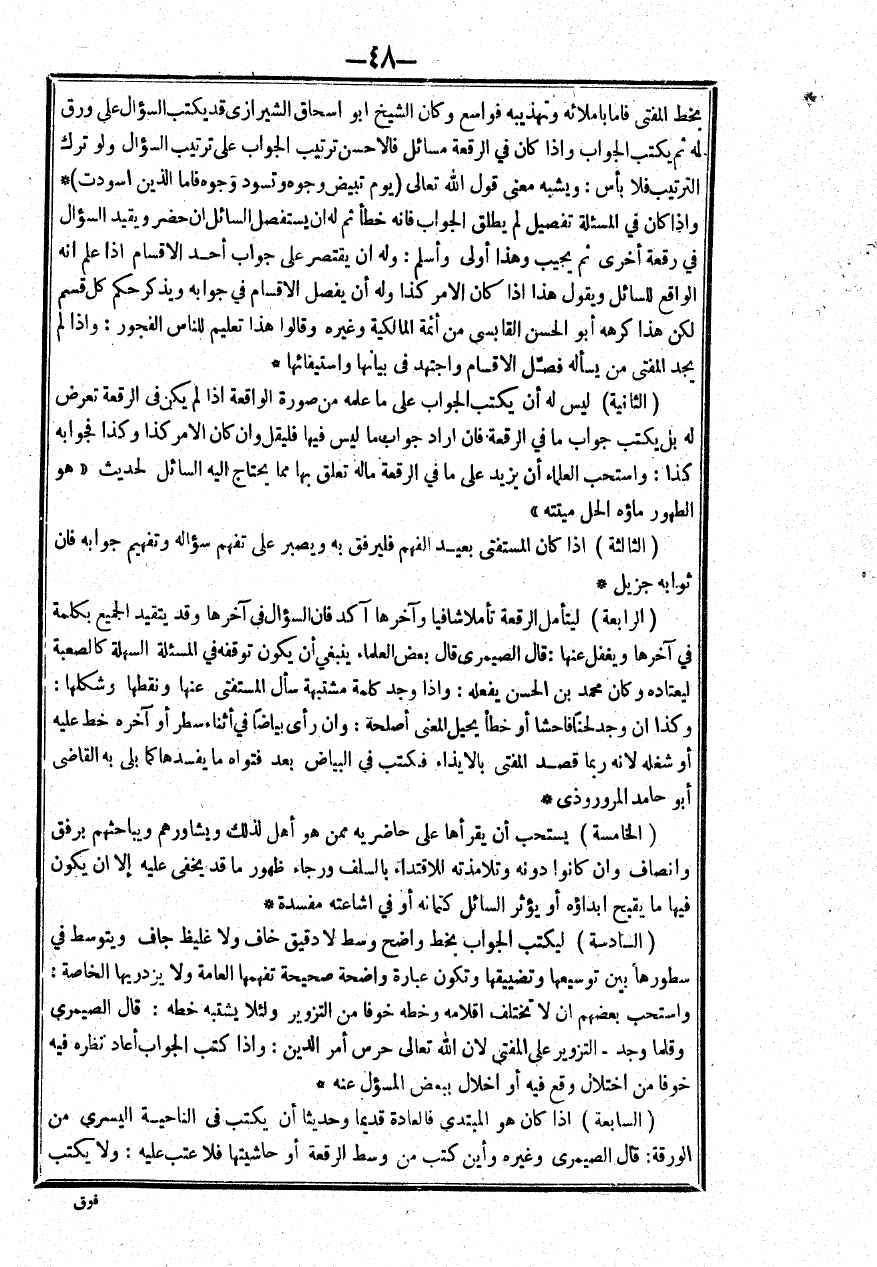 —٤٨—
بخط المفتى فاما باملائه وتهذيبه فواسع وكان الشيخ ابو اسحاق الشيرازى قد يكتب السؤال على ورق
له ثم يكتب الجواب واذا كان في الرقعة مسائل فالاحسن ترتيب الجواب على ترتيب السؤال ولو ترك
الترتيب فلا بأس : ويشبه معنى قول الله تعالى (يوم تبيض وجوه وتسود وجوه فاما الذين اسودت)*
واذا كان في المسئلة تفصيل لم يطلق الجواب فانه خطأ ثم له ان يستفصل السائل ان حضر ويقيد السؤال
في رقعة أخرى ثم يجيب وهذا أولى وأسلم : وله ان يقتصر على جواب أحد الاقسام اذا علم انه
الواقع للسائل ويقول هذا اذا كان الامر كذا وله أن يفصل الاقسام في جوابه ويذكر حكم كل قسم
لكن هذا كرهه أبو الحسن القابسي من أئمة المالكية وغيره وقالوا هذا تعليم للناس الفجور : واذا لم
يجد المفتى من يسأله فصل الاقسام واجتهد فى بيانها واستيفائها *
( الثانية) ليس له أن يكتب الجواب على ما علمه من صورة الواقعة اذا لم يكن فى الرقعة تعرض
له بل يكتب جواب ما في الرقعة فان اراد جواب ما ليس فيها فليقل وان كان الامر كذا وكذا فجوابه
كذا : واستحب العلماء أن يزيد على ما في الرقعة ماله تعلق بها مما يحتاج اليه السائل لحديث « هو
الطهور ماؤه الحل ميتته »
( الثالثة ) اذا كان المستفتى بعيد الفهم فليرفق به ويصبر على تفهم سؤاله وتفهيم جوابه فان
ثوابه جزيل *
( الرابعة ) ليتأمل الرقعة تأملا شافيا وآخرها آكد فان السؤال في آخرها وقد يتقيد الجميع بكلمة
في آخرها ويغفل عنها : قال الصيمرى قال بعض العلماء ينبغي أن يكون توقفه في المسئلة السهلة كالصعبة
ليعتاده وكان محمد بن الحسن يفعله : واذا وجد كلمة مشتبهة سأل المستفتى عنها ونقطها وشكلها :
وكذا ان وجد لحنا فاحشا أو خطأ يحيل المعنى أصلحة : وان رأى بياضا في أثناء سطر أو آخره خط عليه
أو شغله لانه ربما قصد المفتى بالايذاء فكتب في البياض بعد فتواه ما يفسدها كما بلى به القاضى
أبو حامد المروروذى *
( الخامسة ) يستحب أن يقرأها على حاضريه ممن هو أهل لذلك ويشاورهم ويباحثهم برفق
وانصاف وان كانوا دونه وتلامذته للاقتداء بالسلف ورجاء ظهور ما قد يخفى عليه إلا ان يكون
فيها ما يقبح ابداؤه أو يؤثر السائل كتمانه أو في اشاعته مفسدة *
( السادسة ) ليكتب الجواب بخط واضح وسط لا دقيق خاف ولا غليظ جاف ويتوسط في
سطورها بين توسيعها وتضييقها وتكون عبارة واضحة صحيحة تفهمها العامة ولا يزدريها الخاصة :
واستحب بعضهم ان لا تختلف اقلامه وخطه خوفا من التزوير ولئلا يشتبه خطه : قال الصيمري
وقلما وجد - التزوير على المفتي لان الله تعالى حرس أمر الدين : واذا كتب الجواب أعاد نظره فيه
خوفا من اختلال وقع فيه أو اخلال ببعض المسؤل عنه *
( السابعة ) اذا كان هو المبتدي فالعادة قديما وحديثا أن يكتب فى الناحية اليسري من
الورقة : قال الصيمرى وغيره وأين كتب من وسط الرقعة أو حاشيتها فلا عتب عليه : ولا يكتب
فوق